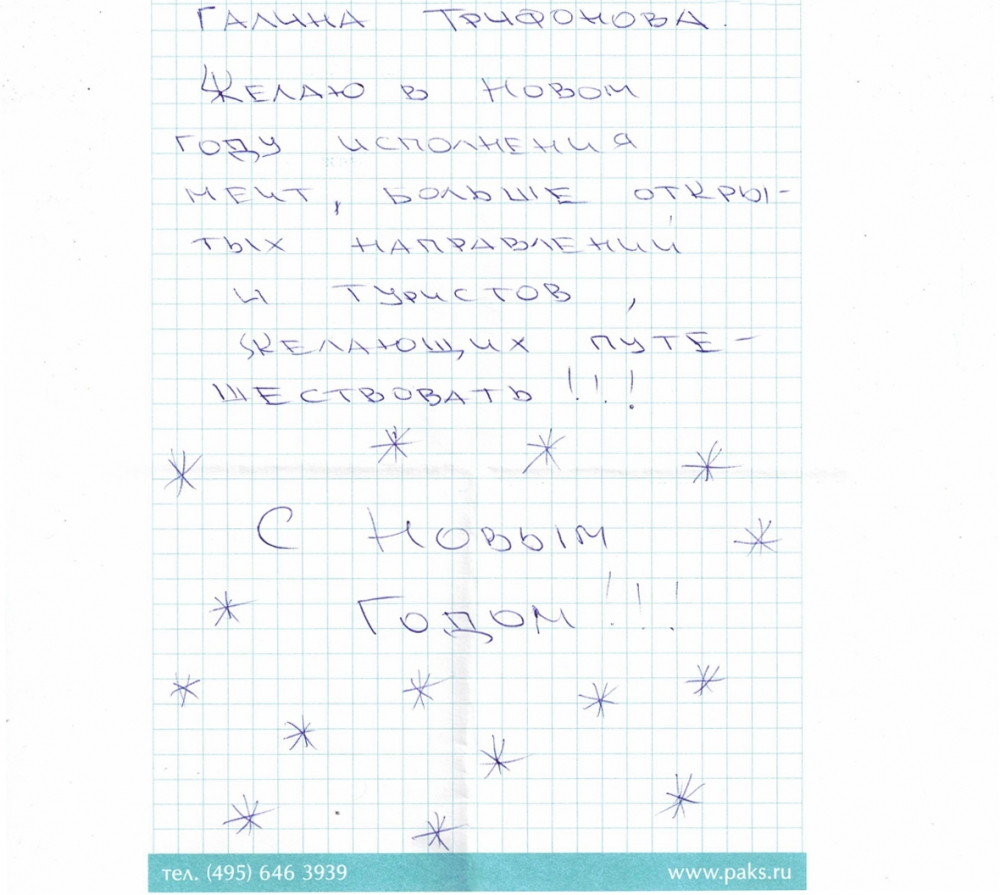 Галина Трифонова.
Желаю в Новом
году исполнения
мечт, больше откры-
тых направлений
и туристов,
желающих путе-
шествовать!!!
С Новым
Годом!!!
тел. (495) 646 3939
www.paks.ru